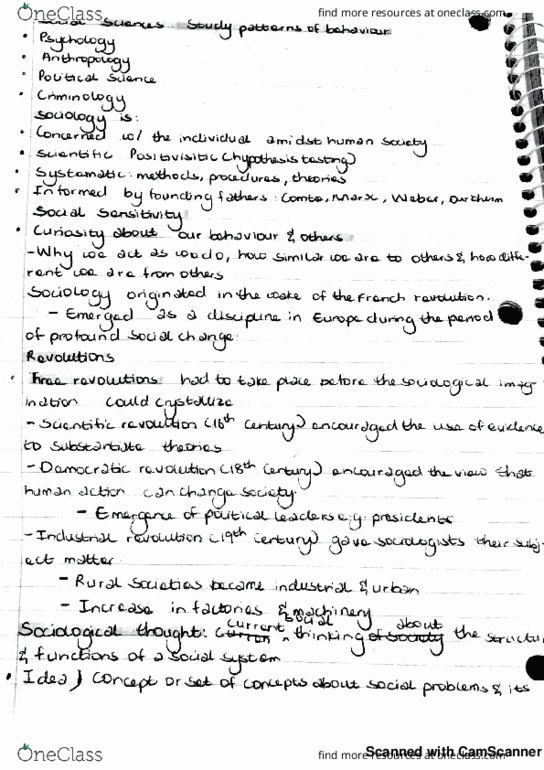 OneClass
find more resources at oneclass.com
Social Sciences Study patterns of behaviour
• Psychology
• Anthropology
• Political Science
• Criminology
Sociology is:
• Concerned w/ the individual amidst human society
• Scientific Positivisitic (hypothesis testing)
• Systematic: methods, procedures, theories
• Informed by founding fathers: Comte, Marx, Weber, Durkheim
Social Sensitivity
• Curiosity about our behaviour & others
-Why we act as we do, how similar we are to others & how diffe-
rent we are from others
Sociology originated in the wake of the French revolution.
- Emerged as a discipline in Europe during the period
of profound social change.
Revolutions
• Three revolutions had to take place before the sociological imag-
ination could crystallize
- Scientific revolution (16th Century) encouraged the use of evidence
to substantiate theories
- Democratic revolution (18th Century) encouraged the view that
human action can change society.
- Emergence of political leaders e.g. presidents
-Industrial revolution (19th Century) gave sociologists their subj-
ect matter.
- Rural Societies became industrial & urban
- Increase in factories & machinery
Sociological thought: current social thinking of society about the structur
& functions of a social system
• Idea) Concept or set of concepts about social problems & its
OneClass
find more resources at oneclass.com
Scanned with CamScanner